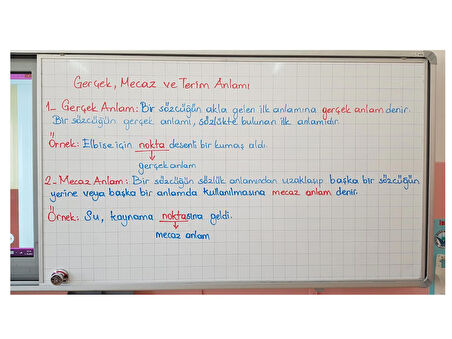 Gerçek, Mecaz ve Terim Anlamı
1- Gerçek Anlam: Bir sözcüğün akla gelen ilk anlamına gerçek anlam denir.
Bir sözcüğün gerçek anlamı, sözlükte bulunan ilk anlamıdır.
Örnek: Elbise için nokta desenli bir kumaş aldı.
gerçek anlam
2- Mecaz Anlam: Bir sözcüğün sözlük anlamından uzaklaşıp başka bir sözcüğün
yerine veya başka bir anlamda kullanılmasına mecaz anlam denir.
Örnek: Su, kaynama noktasına geldi.
mecaz anlam